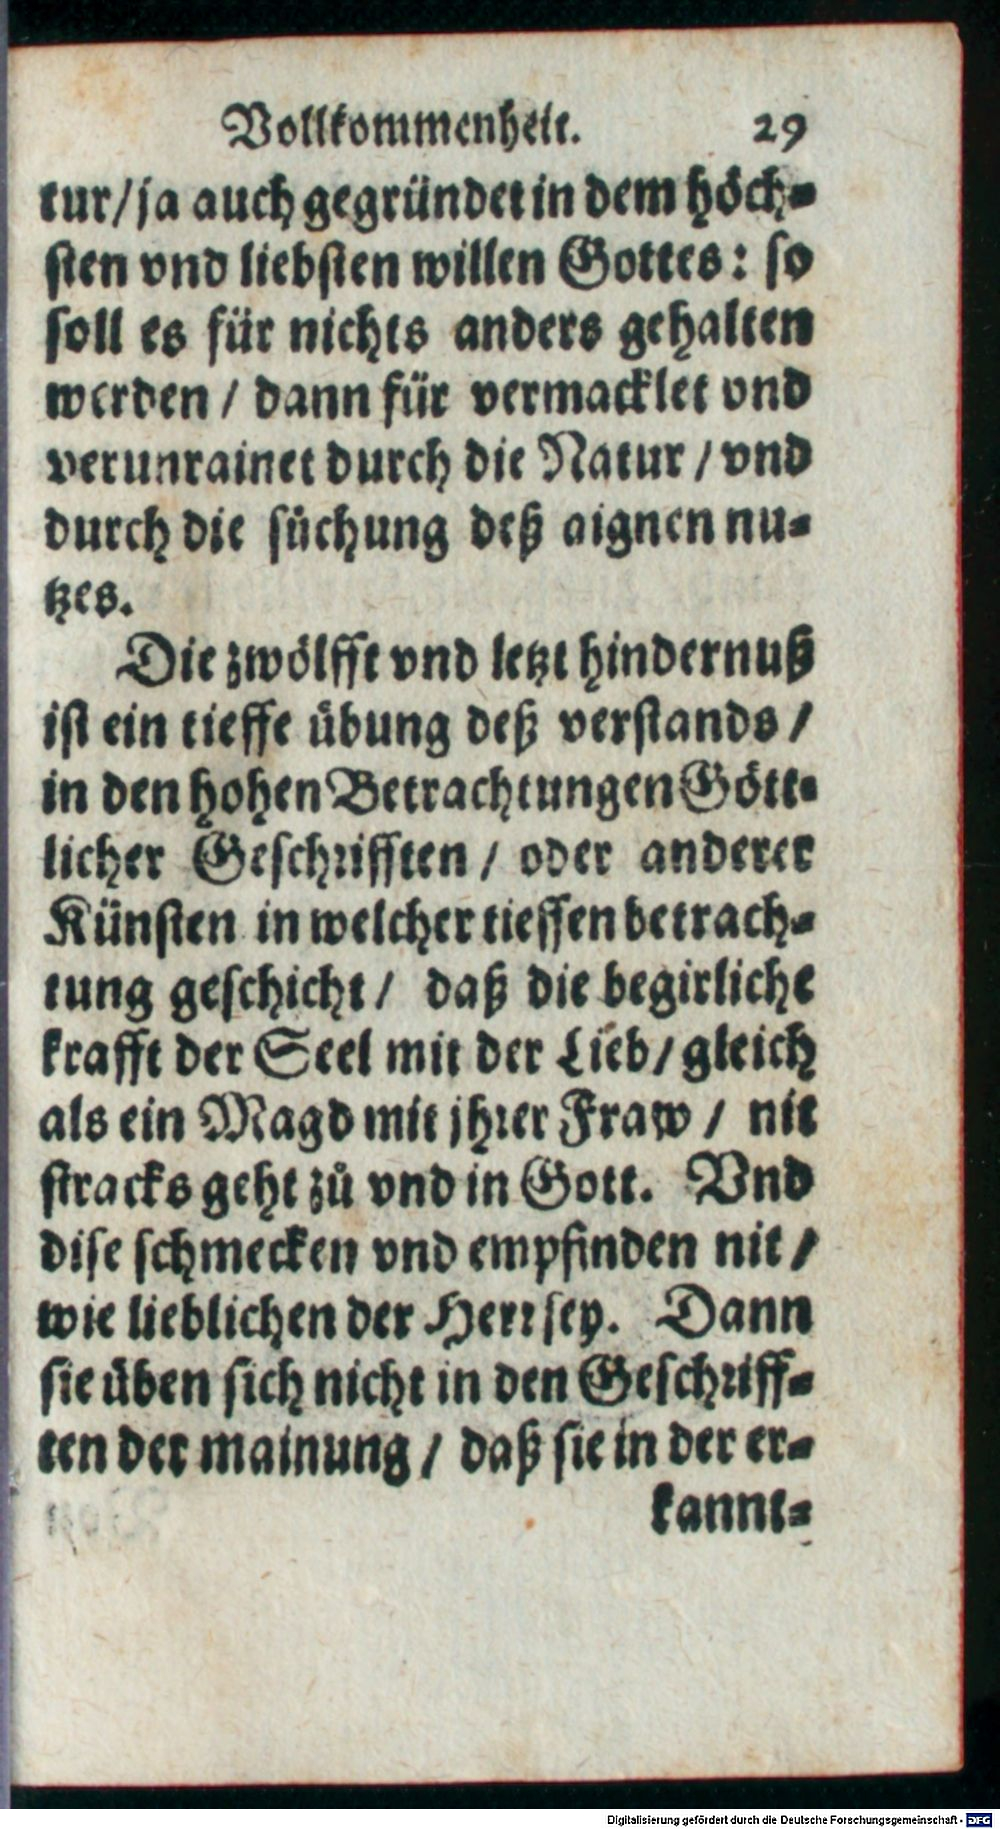 Vollkommenheit. 29
tur/ ja auch gegründet in dem höch-
sten vnd liebsten willen Gottes: so
soll es für nichts anders gehalten
werden / dann für vermacklet vnd
verunrainet durch die Natur / vnd
durch die süchung deß aignen nu-
tzes.
Die zwölfft vnd letzt hindernuß
ist ein tieffe übung deß verstands /
in den hohen Betrachtungen Gött-
licher Geschrifften / oder anderer
Künsten in welcher tieffen betrach-
tung geschicht / daß die begirliche
krafft der Seel mit der Lieb / gleich
als ein Magd mit jhrer Fraw / nit
stracks geht zů vnd in Gott. Vnd
dise schmecken vnd empfinden nit /
wie lieblichen der Herr sey. Dann
sie üben sich nicht in den Geschriff-
ten der mainung / daß sie in der er-
kannt-
Digitalisierung gefördert durch die Deutsche Forschungsgemeinschaft - DFG